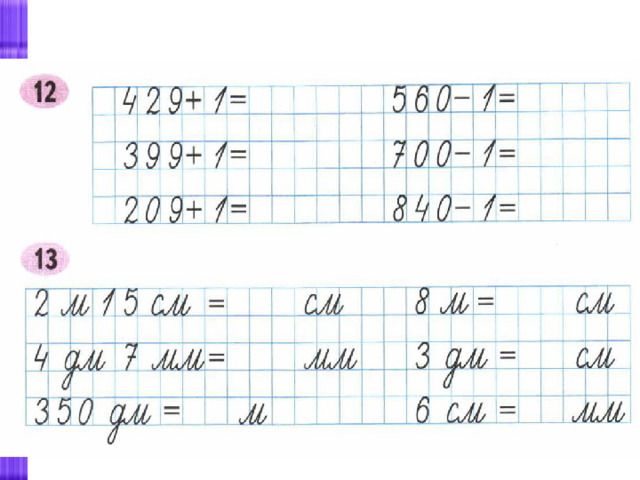 12
429+1= 560-1=
399+1= 700-1=
209+1= 840-1=
13
2 м 15 см = см 8 м = см
4 дм 7 мм = мм 3 дм = см
350 дм = м 6 см = мм